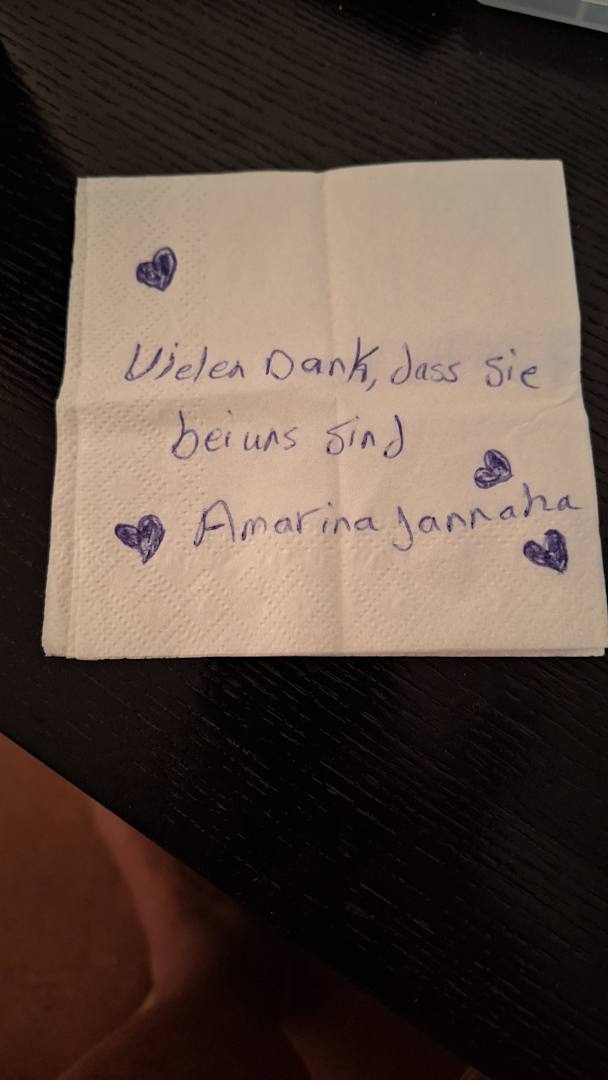 Vielen Dank, dass Sie
bei uns sind
Amarina Jannaha